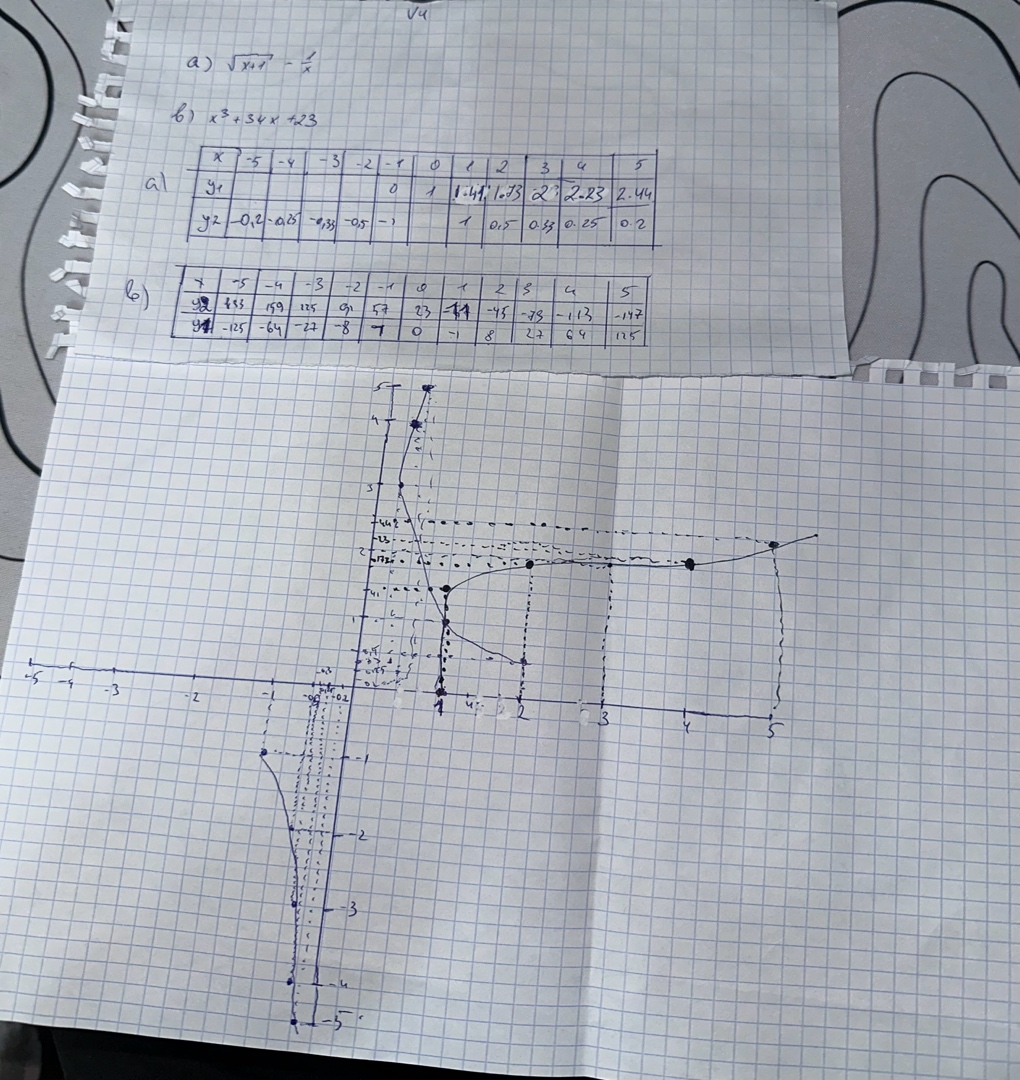 √4
a) √x+1 - 1/x
b) x³+34x+23
a)
x -5 -4 -3 -2 -1 0 1 2 3 4 5
y1 0 1 1.41 1.73 2 2.23 2.44
y2 -0,2 -0,25 -0,33 -0,5 -1 1 0,5 0.33 0.25 0.2
b)
x -5 -4 -3 -2 -1 0 1 2 3 4 5
y2 159 125 91 57 23 -11 -45 -79 -113 -147
y1 -125 -64 -27 -8 0 -1 8 27 64 125
5
4
3
2
1
-5 -4 -3 -2 -1
2 3 4 5
-1
-2
-3
-4
-5